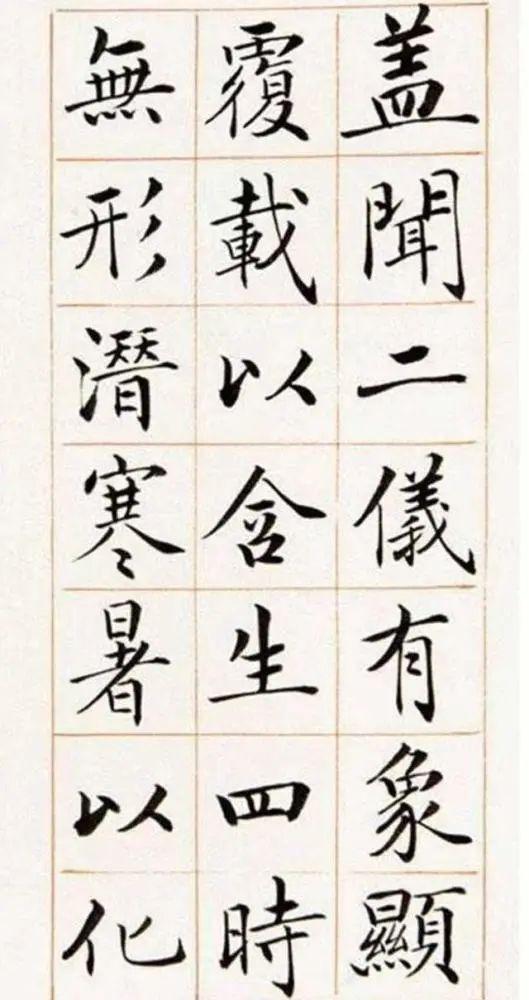 盖聞二儀有象顯
覆載以含生四時
無形潛寒暑以化